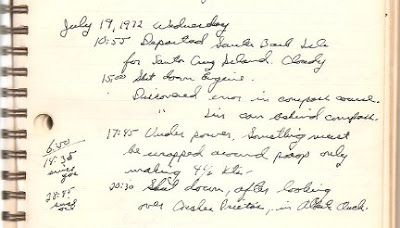 July 19, 1972 Wednesday
10:55 Departed Santa Barb Isle
for Santa Cruz Island. Cloudy
1500 Shut down Engine.
" Discovered error in compass course.
" tin can behind compass.
17:45 Under power. Something must
be wrapped around props only
making 4½ kts.
20:30 Shut down, after looking
over Prisoner, in
6:50
14:35
20:45